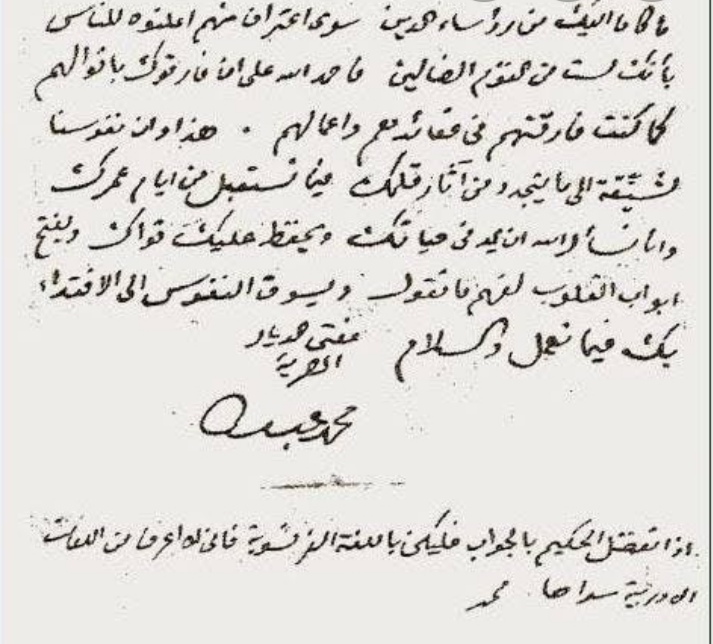 ما كان اليك من رؤساء الدين سوى اعتراف منهم اعلنوه للناس
بأنك لست من القوم الضالين فاحمد الله على ان فارقوك باقوالهم
كما كنت فارقتهم فى عقائدهم واعمالهم . هذا وان نفوسنا
لشيقة الى ما يتجدد من آثار قلمك فيما تستقبل من ايام عمرك
وانا نسأل الله ان يمد فى حياتك ويحفظ عليك قواك ويفتح
ابواب القلوب لفهم ما تقول ويسوق النفوس الى الاقتداء
بك فيما تعمل والسلام
مفتى الديار
المصرية
محمد عبده
اذا تفضل الحكيم بالجواب فليكن باللغة الفرنسوية فانى لا اعرف من اللغات
الاوربية سواها محمد